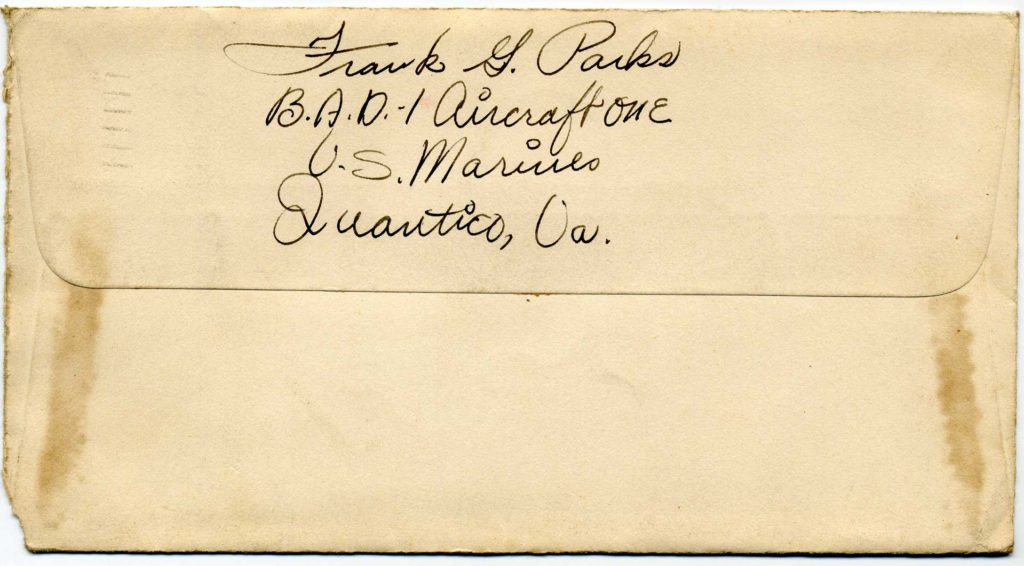 Frank G. Parks
B.A.D.-1 Aircraft ONE
U.S. Marines
Quantico, Va.